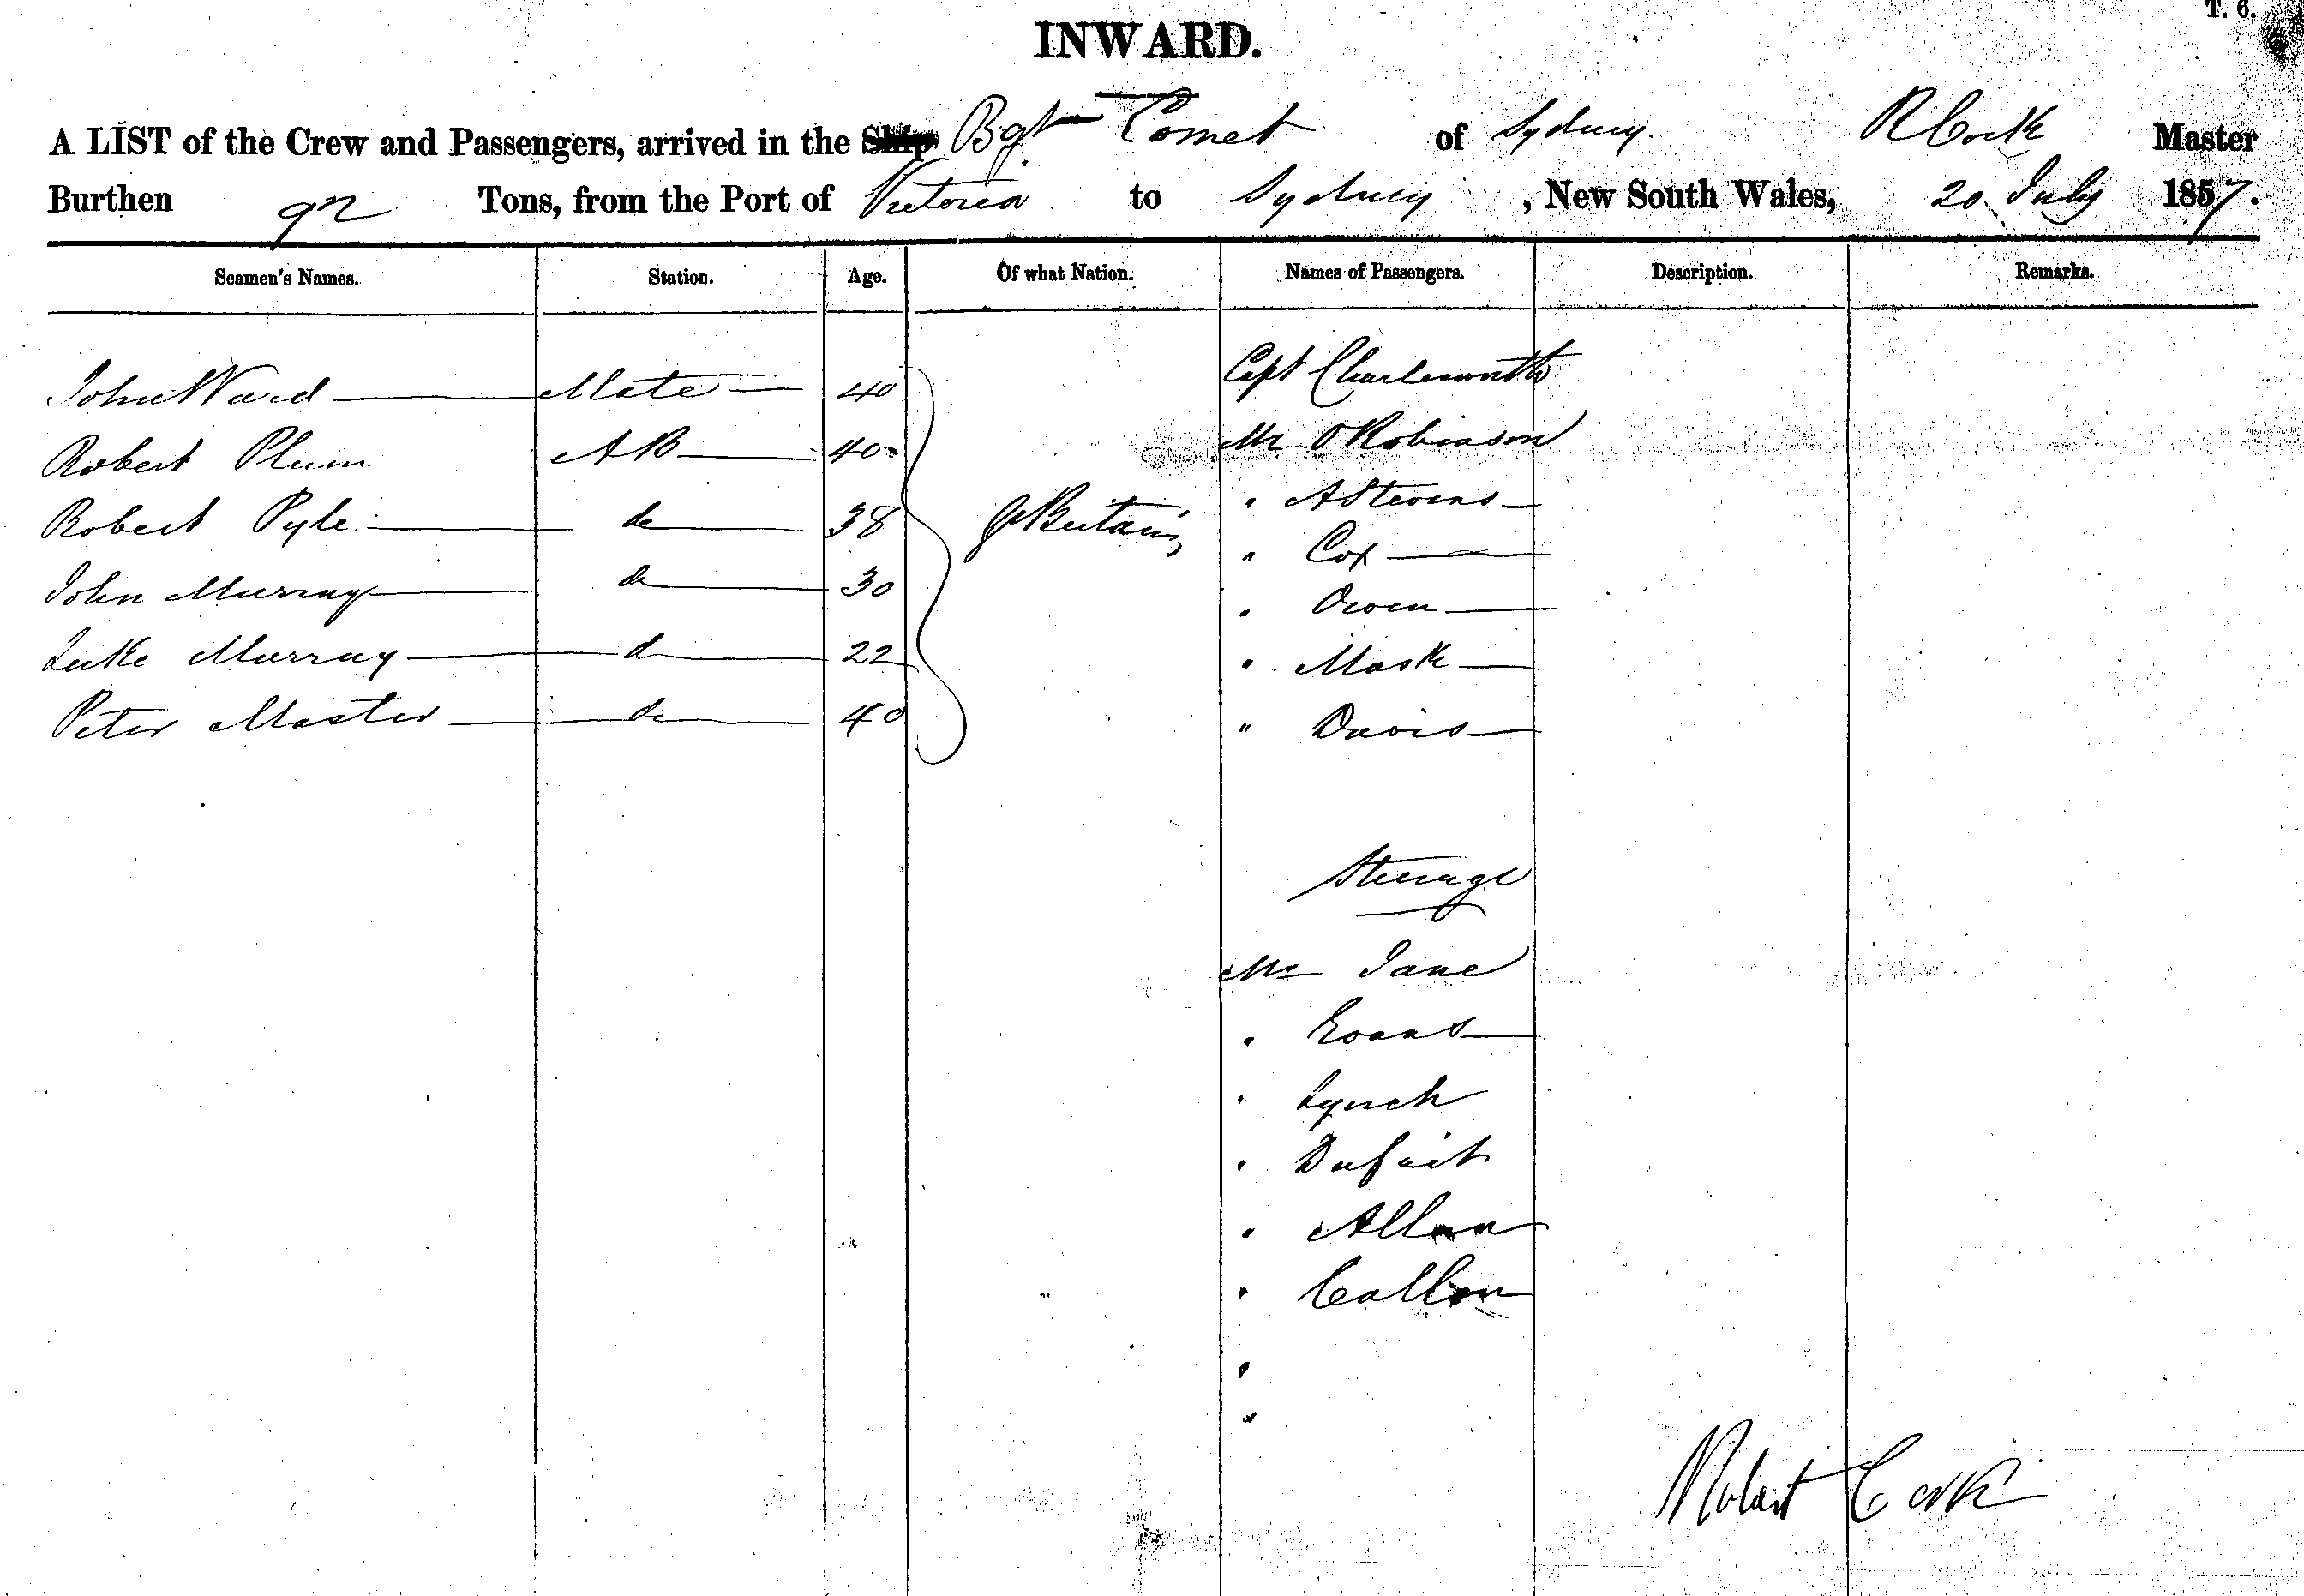 T. 6.
INWARD.
A LIST of the Crew and Passengers, arrived in the Ship Bgt Comet of Sydney R Cork Master
Burthen 92 Tons, from the Port of Victoria to Sydney , New South Wales, 20 July 1857.
Seamen's Names. Station. Age. Of what Nation. Names of Passengers. Description. Remarks.
Capt Charlesworth
John Ward Mate 40
Mr Robinson
Robert Plum AB 40
" A Stevens
Robert Pyle do 38 Gt Britain
" Cox
John Murray do 30
" Owen
Luke Murray do 22
" Mask
Peter Master do 40
" Davis
Steerage
Mr Jane
" Evans
" Lynch
"
" Allan
" Callon
"
"
Robert Cork